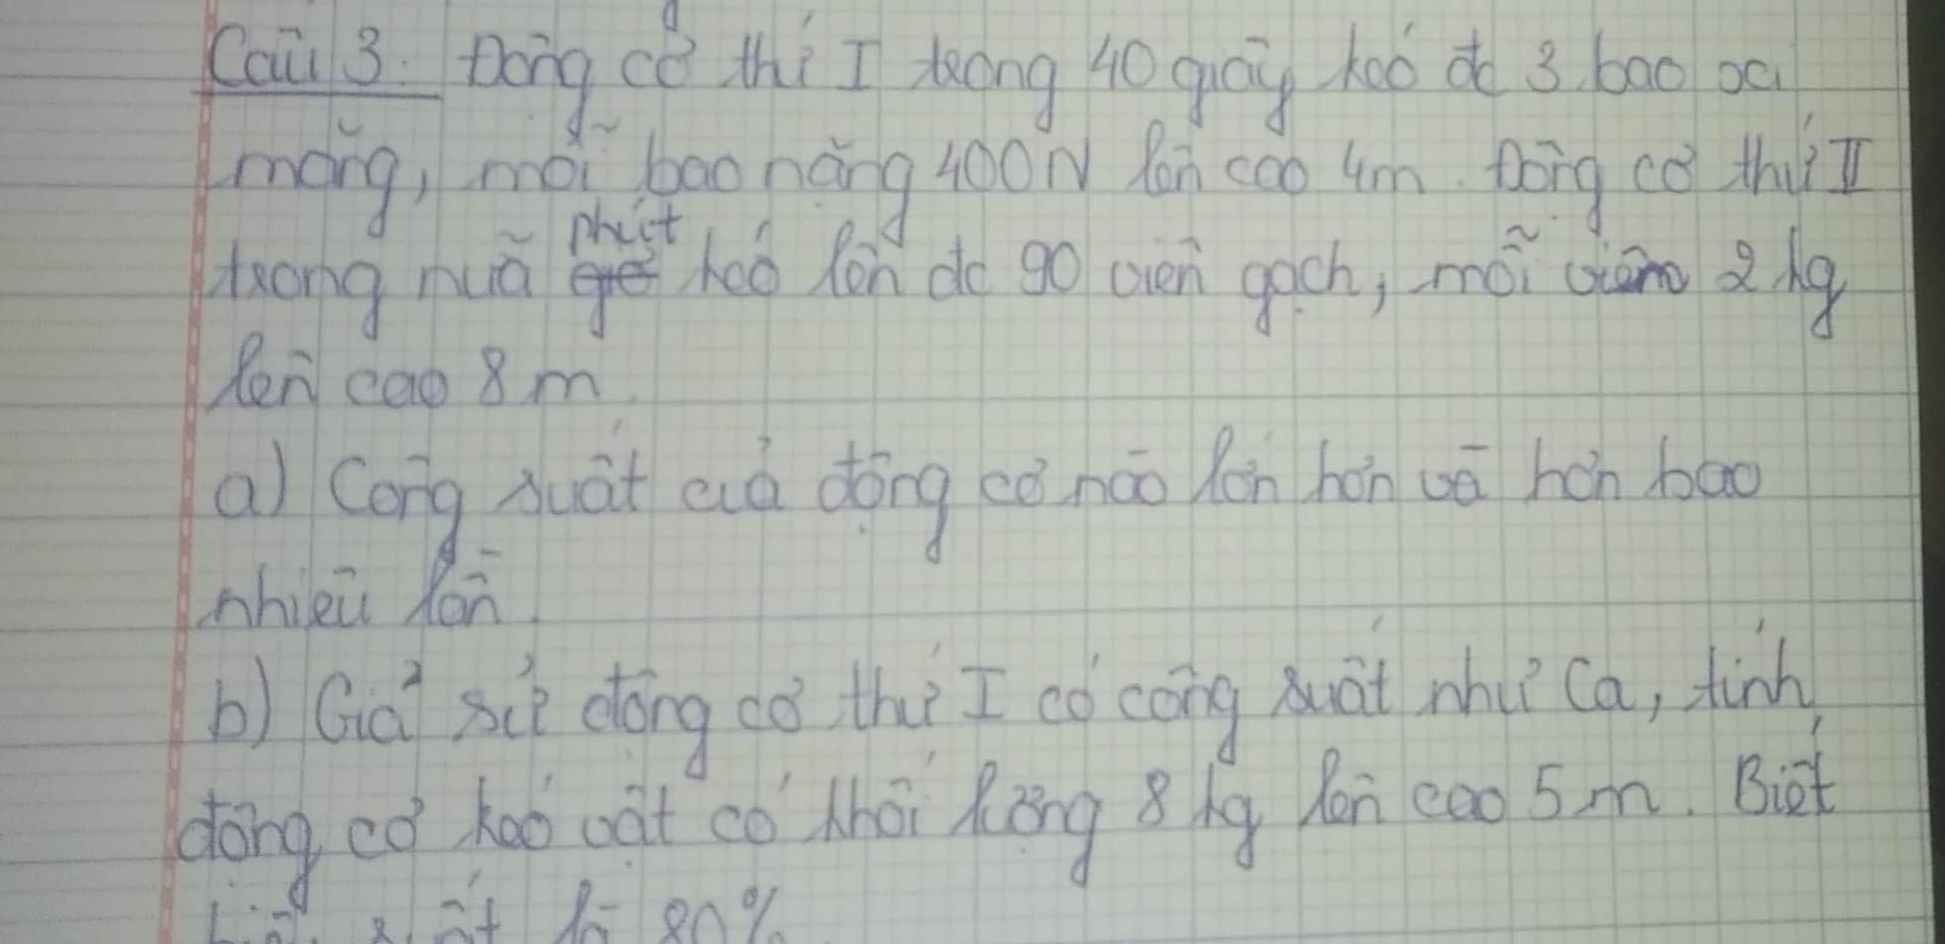 Câu 3: Động cơ thứ I trong 40 giây kéo đc 3 bao xi
măng, mỗi bao nặng 400N lên cao 4m. Động cơ thứ II
trong nửa phút kéo lên đc 90 viên gạch, mỗi viên 2 kg
lên cao 8 m.
a) Công suất của động cơ nào lớn hơn và hơn bao
nhiêu lần.
b) Giả sử động cơ thứ I có công suất như Ca, tính
động cơ kéo vật có khối lượng 8 kg lên cao 5 m. Biết
hiệu suất là 80%